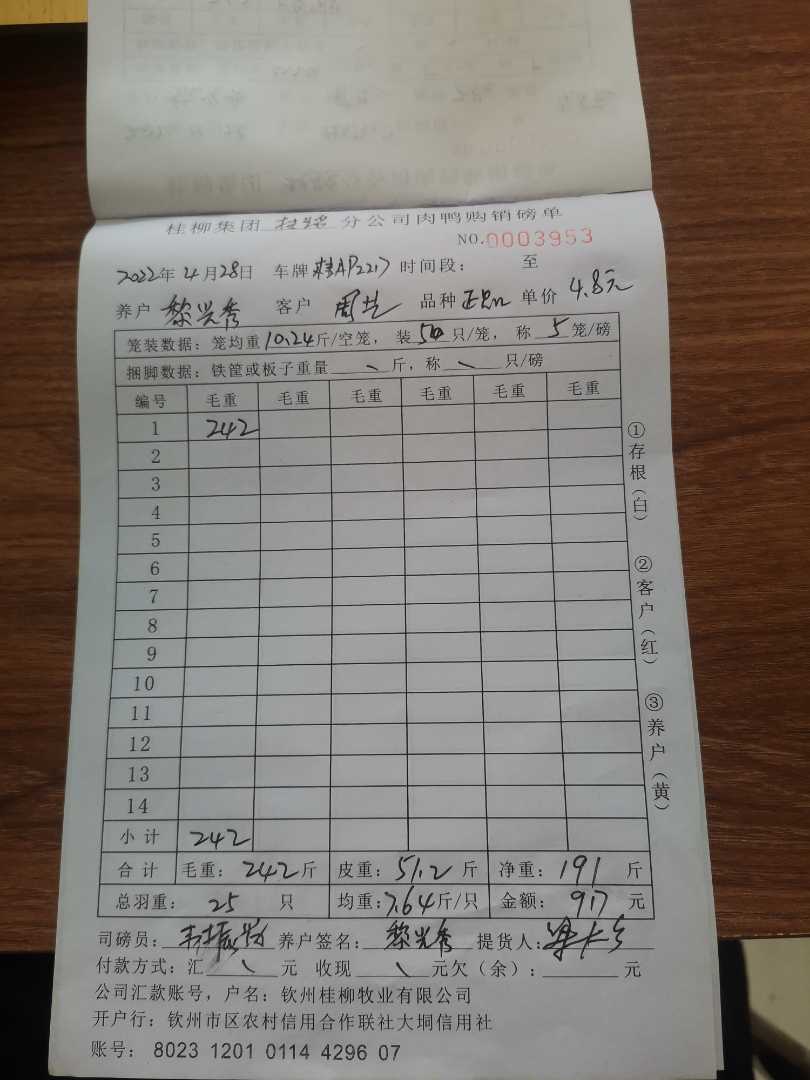 桂柳集团 分公司肉鸭购销磅单
NO.0003953
2022年4月28日 车牌 桂AP2217 时间段： 至
养户 黎兴秀 客户 周 品种 单价 4.8元
笼装数据：笼均重10.24斤/空笼，装50只/笼，称5笼/磅
捆脚数据：铁筐或板子重量 斤，称 只/磅
编号 毛重 毛重 毛重 毛重 毛重 毛重
1 242
2
3
4
5
6
7
8
9
10
11
12
13
14
小计 242
合计 毛重：242斤 皮重：51.2斤 净重：191斤
总羽重：25只 均重：7.64斤/只 金额：917元
司磅员： 养户签名：黎兴秀 提货人：
付款方式：汇 元 收现 元欠（余）： 元
公司汇款账号，户名：钦州桂柳牧业有限公司
开户行：钦州市区农村信用合作联社大垌信用社
账号：8023 1201 0114 4296 07
①存根（白）
②客户（红）
③养户（黄）